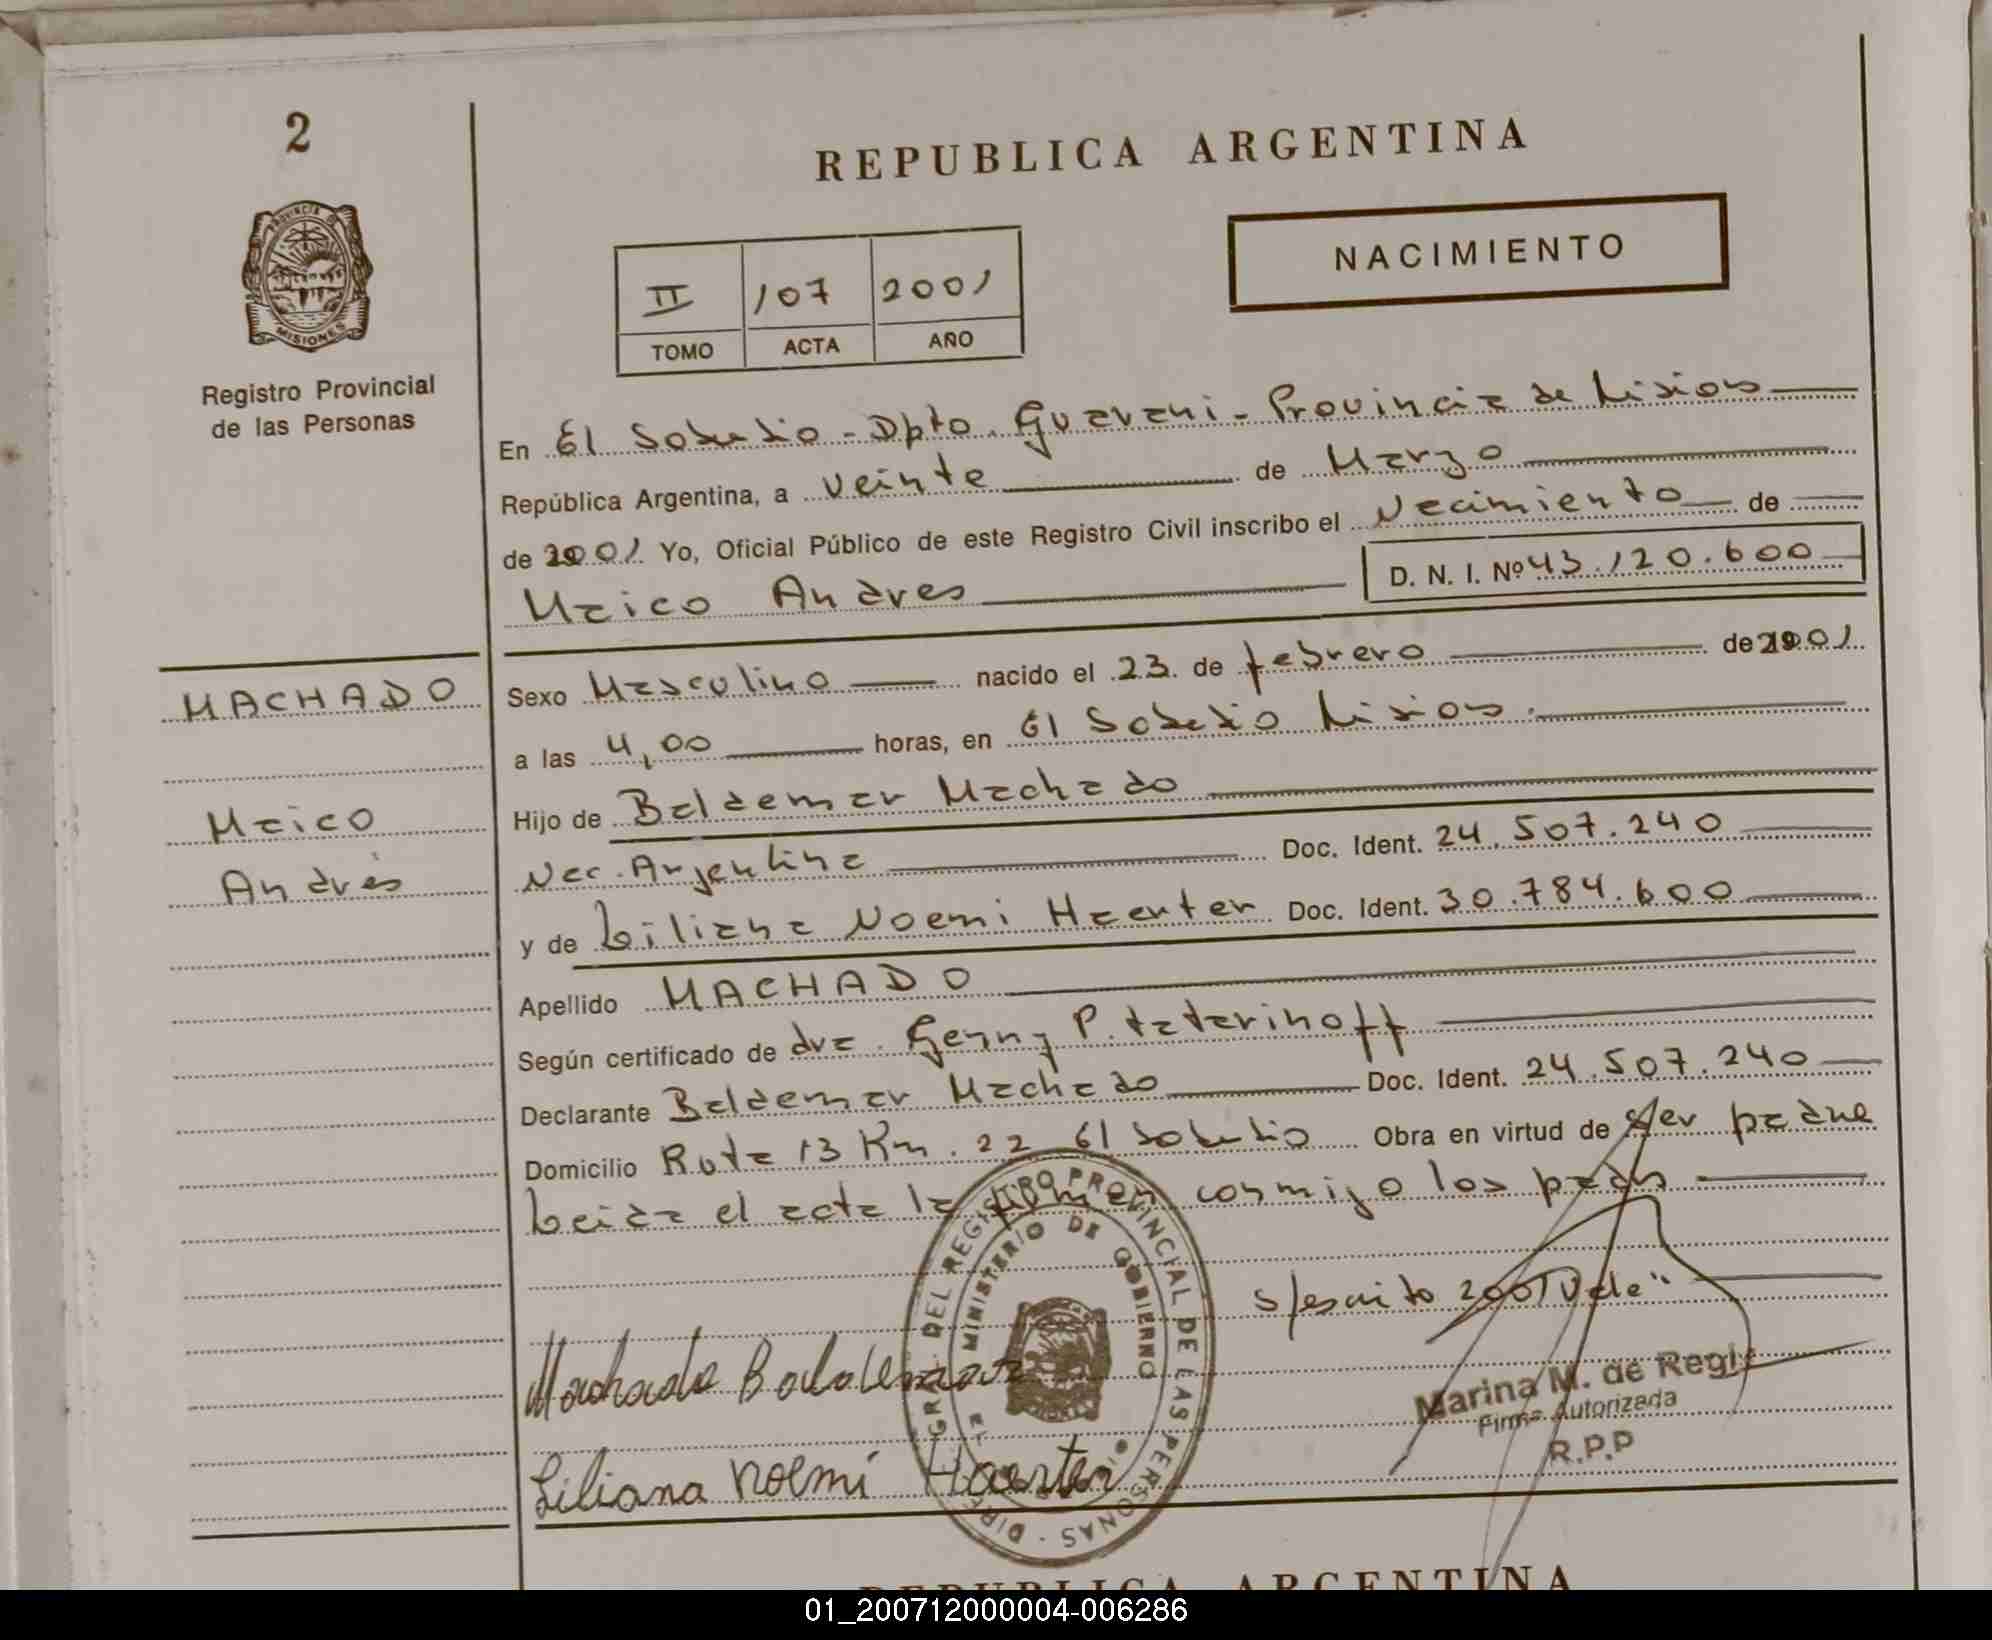 2
REPUBLICA ARGENTINA
PROVINCIA DE
MISIONES
Registro Provincial
de las Personas
NACIMIENTO
II 107 2001
TOMO ACTA AÑO
En El Soberbio - Dpto. Guarani - Provincia de Misiones
República Argentina, a veinte de Marzo
de 2001 Yo, Oficial Público de este Registro Civil inscribo el Nacimiento de
Maico Andres D. N. I. Nº 43.120.600
MACHADO
Maico
Andrés
Sexo Masculino nacido el 23 de febrero de 2001
a las 4,00 horas, en El Soberbio Misiones.
Hijo de Baldemar Machado
Nac. Argentina Doc. Ident. 24.507.240
y de Liliana Noemi Haerter Doc. Ident. 30.784.600
Apellido MACHADO
Según certificado de dra. Genny P. tatarinoff
Declarante Baldemar Machado Doc. Ident. 24.507.240
Domicilio Ruta 13 Km. 22 El Soberbio Obra en virtud de ser padre
Leida el acta la firman conmigo los padres
s/escrito 2001 Vale"
Machado Baldemar
Liliana Noemí Haerter
DEL REGISTRO PROVINCIAL DE LAS PERSONAS
MINISTERIO DE GOBIERNO
Marina M. de Regis
Firma Autorizada
R.P.P
REPUBLICA ARGENTINA
01_200712000004-006286